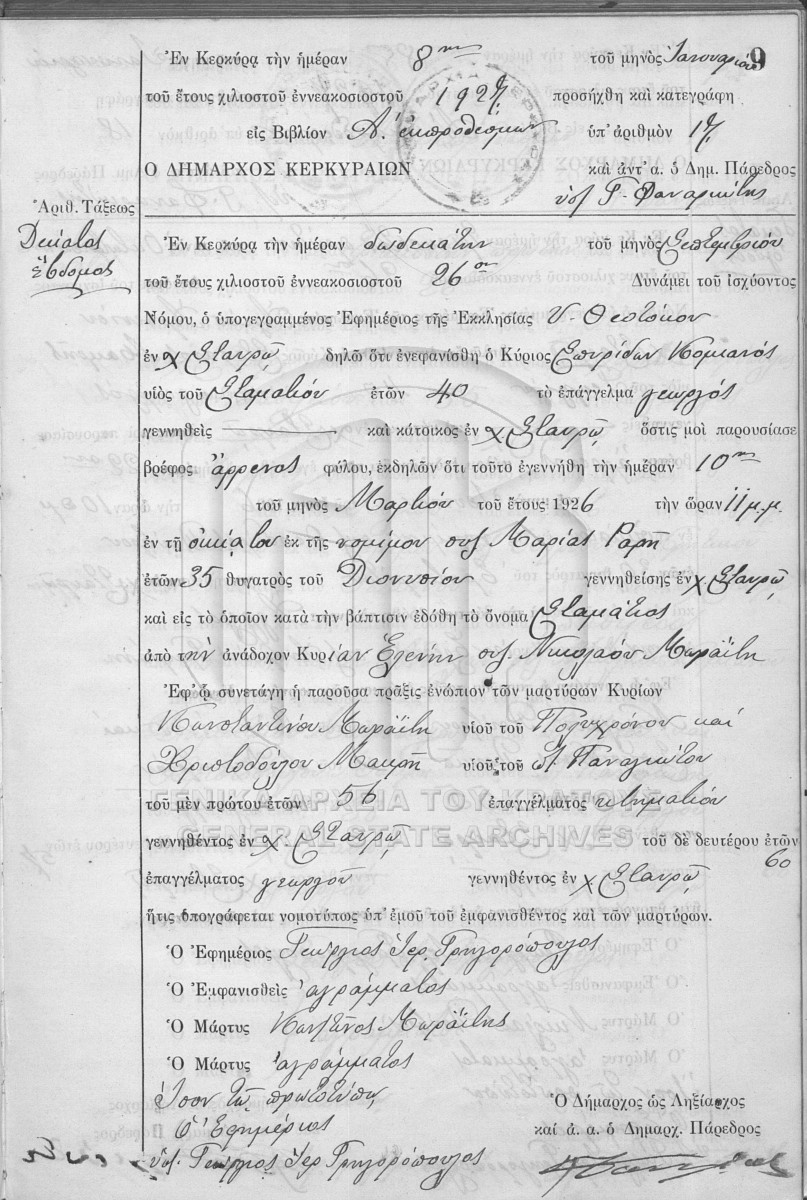 9
Ἐν Κερκύρᾳ τὴν ἡμέραν 8ην τοῦ μηνὸς Ἰανουαρίου
τοῦ ἔτους χιλιοστοῦ ἐννεακοσιοστοῦ 1927 προσήχθη καὶ κατεγράφη
εἰς Βιβλίον Α. ἐκπροθέσμων ὑπ' ἀριθμὸν 17
Ο ΔΗΜΑΡΧΟΣ ΚΕΡΚΥΡΑΙΩΝ καὶ ἀντ' α. ὁ Δημ. Πάρεδρος
Γ. Φαναριώτης
Ἀριθ. Τάξεως
Δέκατος
ἕβδομος
Ἐν Κερκύρᾳ τὴν ἡμέραν δωδεκάτην τοῦ μηνὸς Σεπτεμβρίου
τοῦ ἔτους χιλιοστοῦ ἐννεακοσιοστοῦ 26ου Δυνάμει τοῦ ἰσχύοντος
Νόμου, ὁ ὑπογεγραμμένος Ἐφημέριος τῆς Ἐκκλησίας Υ. Θεοτόκου
ἐν χ Σταυρῷ δηλῶ ὅτι ἐνεφανίσθη ὁ Κύριος Σπυρίδων Κομιανός
υἱὸς τοῦ Σταματίου ἐτῶν 40 τὸ ἐπάγγελμα γεωργός
γεννηθεὶς καὶ κάτοικος ἐν χ Σταυρῷ ὅστις μοὶ παρουσίασε
βρέφος ἄρρενος φύλου, ἐκδηλῶν ὅτι τοῦτο ἐγεννήθη τὴν ἡμέραν 10ην
τοῦ μηνὸς Μαρτίου τοῦ ἔτους 1926 τὴν ὥραν 11 μ.μ.
ἐν τῇ οἰκίᾳ του ἐκ τῆς νομίμου συζ Μαρίας Ραρῆ
ἐτῶν 35 θυγατρὸς τοῦ Διονυσίου γεννηθείσης ἐν χ Σταυρῷ
καὶ εἰς τὸ ὁποῖον κατὰ τὴν βάπτισιν ἐδόθη τὸ ὄνομα Σταμάτιος
ἀπὸ τὴν ἀνάδοχον Κυρίαν Ἑλένην συζ. Νικολάου Μωραΐτη
Ἐφ' ᾧ συνετάγη ἡ παροῦσα πρᾶξις ἐνώπιον τῶν μαρτύρων Κυρίων
Κωνσταντίνου Μωραΐτη υἱοῦ τοῦ Πολυχρόνου καὶ
Χριστοδούλου Μακρῆ υἱοῦ τοῦ Παναγιώτου
τοῦ μὲν πρώτου ἐτῶν 56 ἐπαγγέλματος κτηματίου
ΓΕΝΙΚΑ ΑΡΧΕΙΑ ΤΟΥ ΚΡΑΤΟΥΣ
GENERAL STATE ARCHIVES
γεννηθέντος ἐν χ. Σταυρῷ τοῦ δὲ δευτέρου ἐτῶν
60
ἐπαγγέλματος γεωργοῦ γεννηθέντος ἐν χ Σταυρῷ
ἥτις ὑπογράφεται νομοτύπως ὑπ' ἐμοῦ τοῦ ἐμφανισθέντος καὶ τῶν μαρτύρων.
Ὁ Ἐφημέριος Γεώργιος Ἱερ. Γρηγορόπουλος
Ὁ Ἐμφανισθεὶς ἀγράμματος
Ὁ Μάρτυς Κωνστῖνος Μωραΐτης
Ὁ Μάρτυς ἀγράμματος
Ἴσον τῷ πρωτοτύπῳ
Ὁ Δήμαρχος ὡς Ληξίαρχος
Ὁ Ἐφημέριος καὶ ἀ. α. ὁ Δημαρχ. Πάρεδρος
Γεώργιος Ἱερ Γρηγορόπουλος